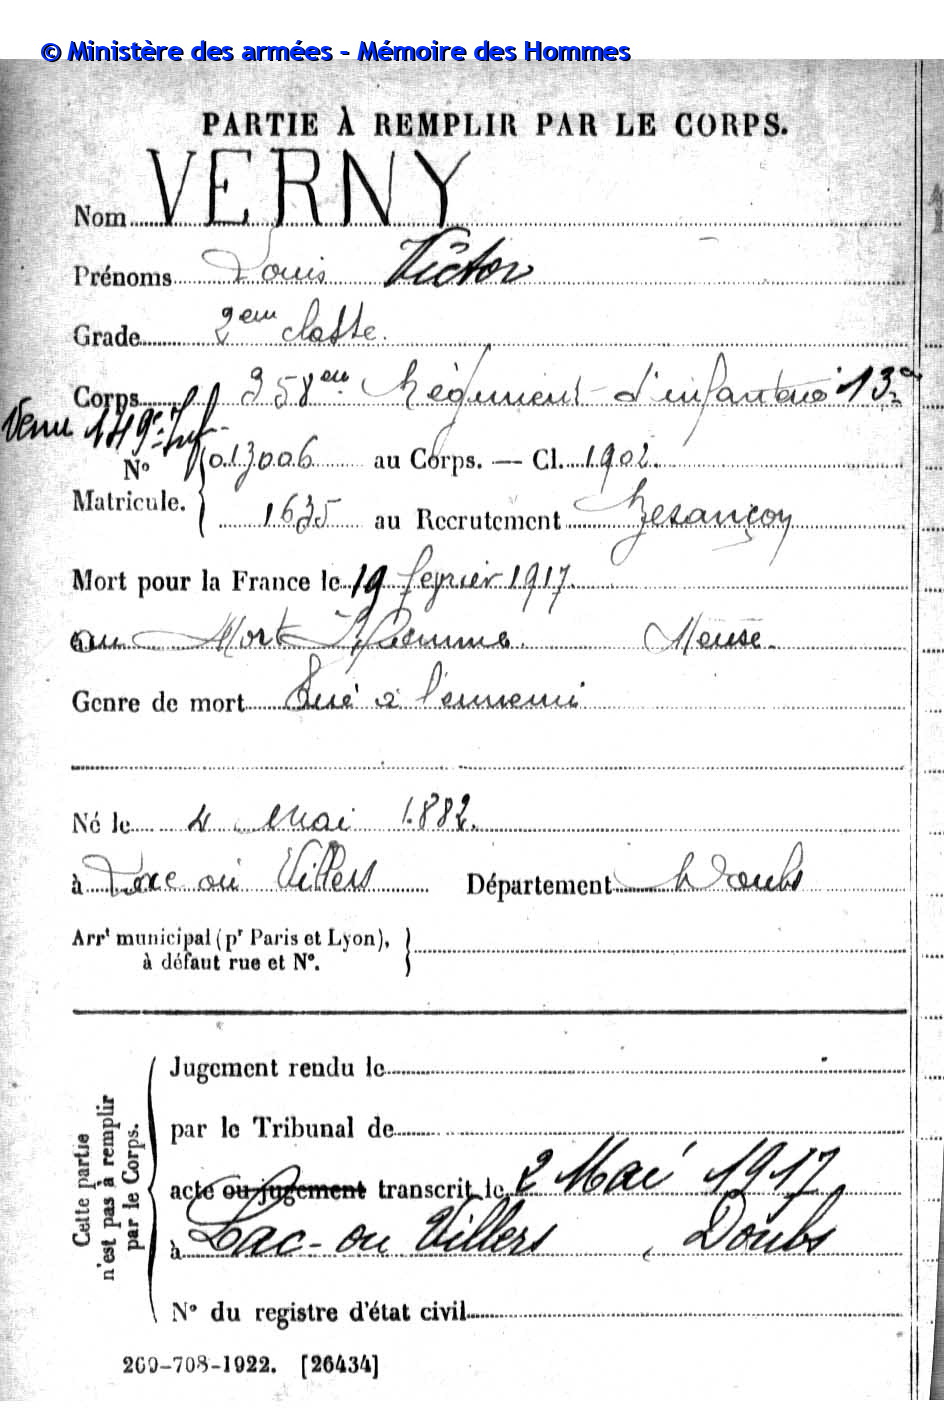 © Ministère des armées - Mémoire des Hommes
PARTIE À REMPLIR PAR LE CORPS.
Nom VERNY
Prénoms Louis Victor
Grade 2em classe.
Corps 358em Régiment d'infanterie 13e
Venu 149e Inf
N° 013006 au Corps. — Cl. 1902.
Matricule. 1635 au Recrutement Besançon
Mort pour la France le 19 fevrier 1917
au Mort Homme. Meuse.
Genre de mort Tué à l'ennemi
Né le 4 Mai 1882.
à Lac ou Villers Département Doubs
Arrt municipal (pr Paris et Lyon),
à défaut rue et N°.
Cette partie
n'est pas à remplir
par le Corps.
Jugement rendu le
par le Tribunal de
acte ou jugement transcrit le 2 Mai 1917
à Lac-ou Villers, Doubs
N° du registre d'état civil
269-708-1922. [26434]